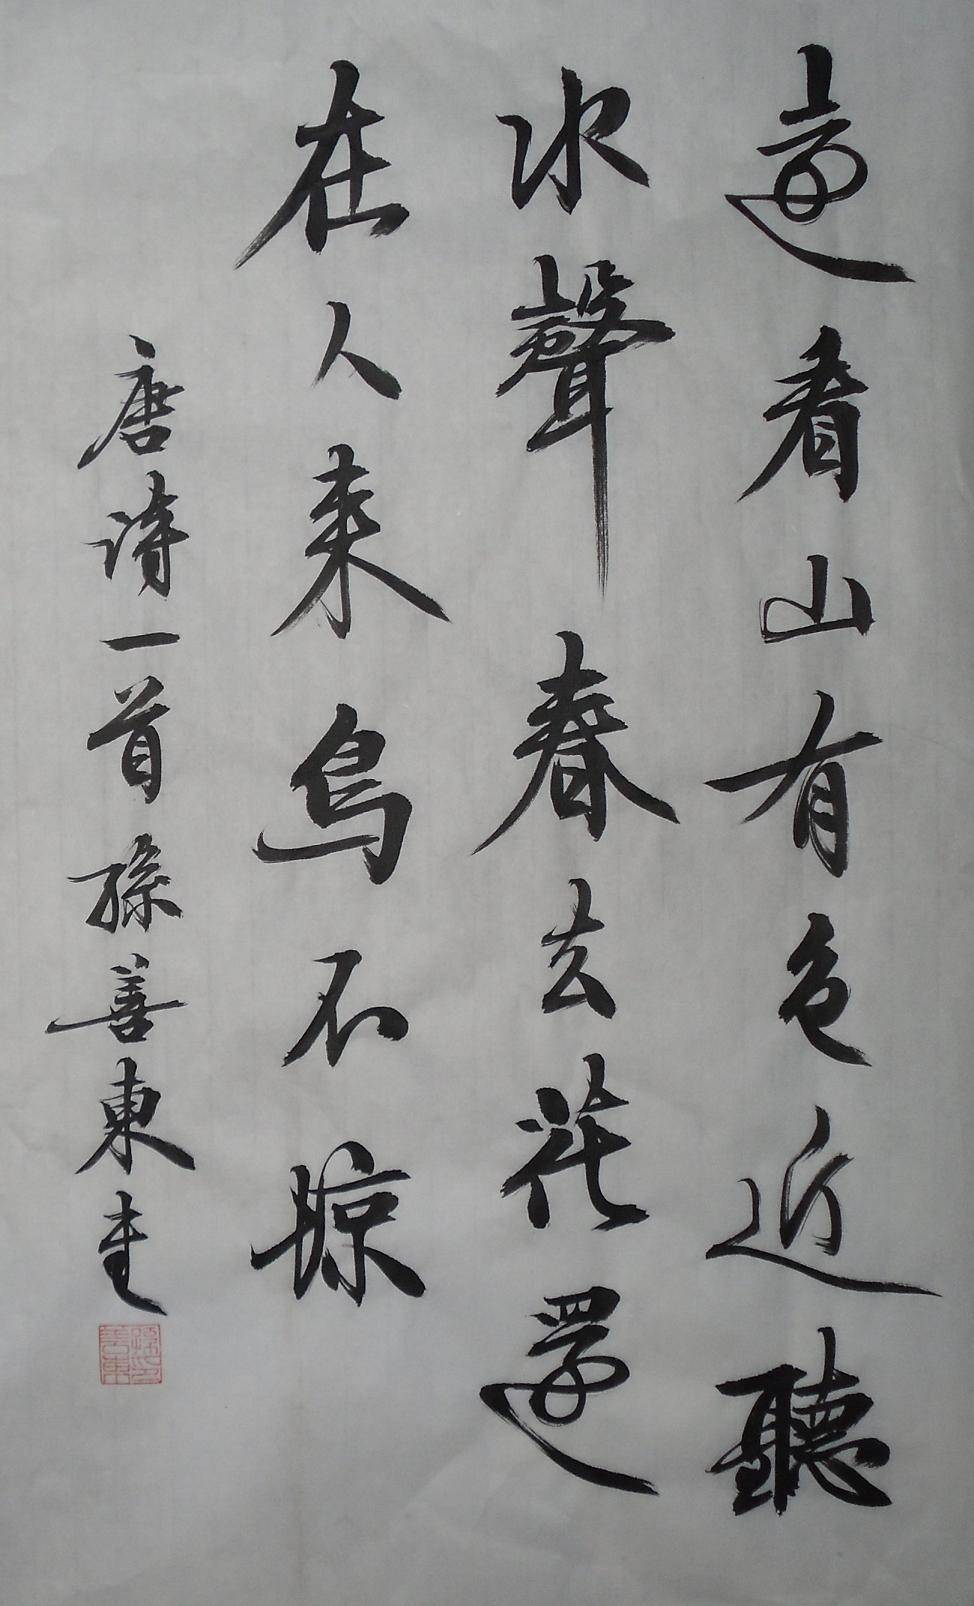 遠看山有色近聽
水聲春去花還
在人来鳥不惊
唐詩一首孫善東书